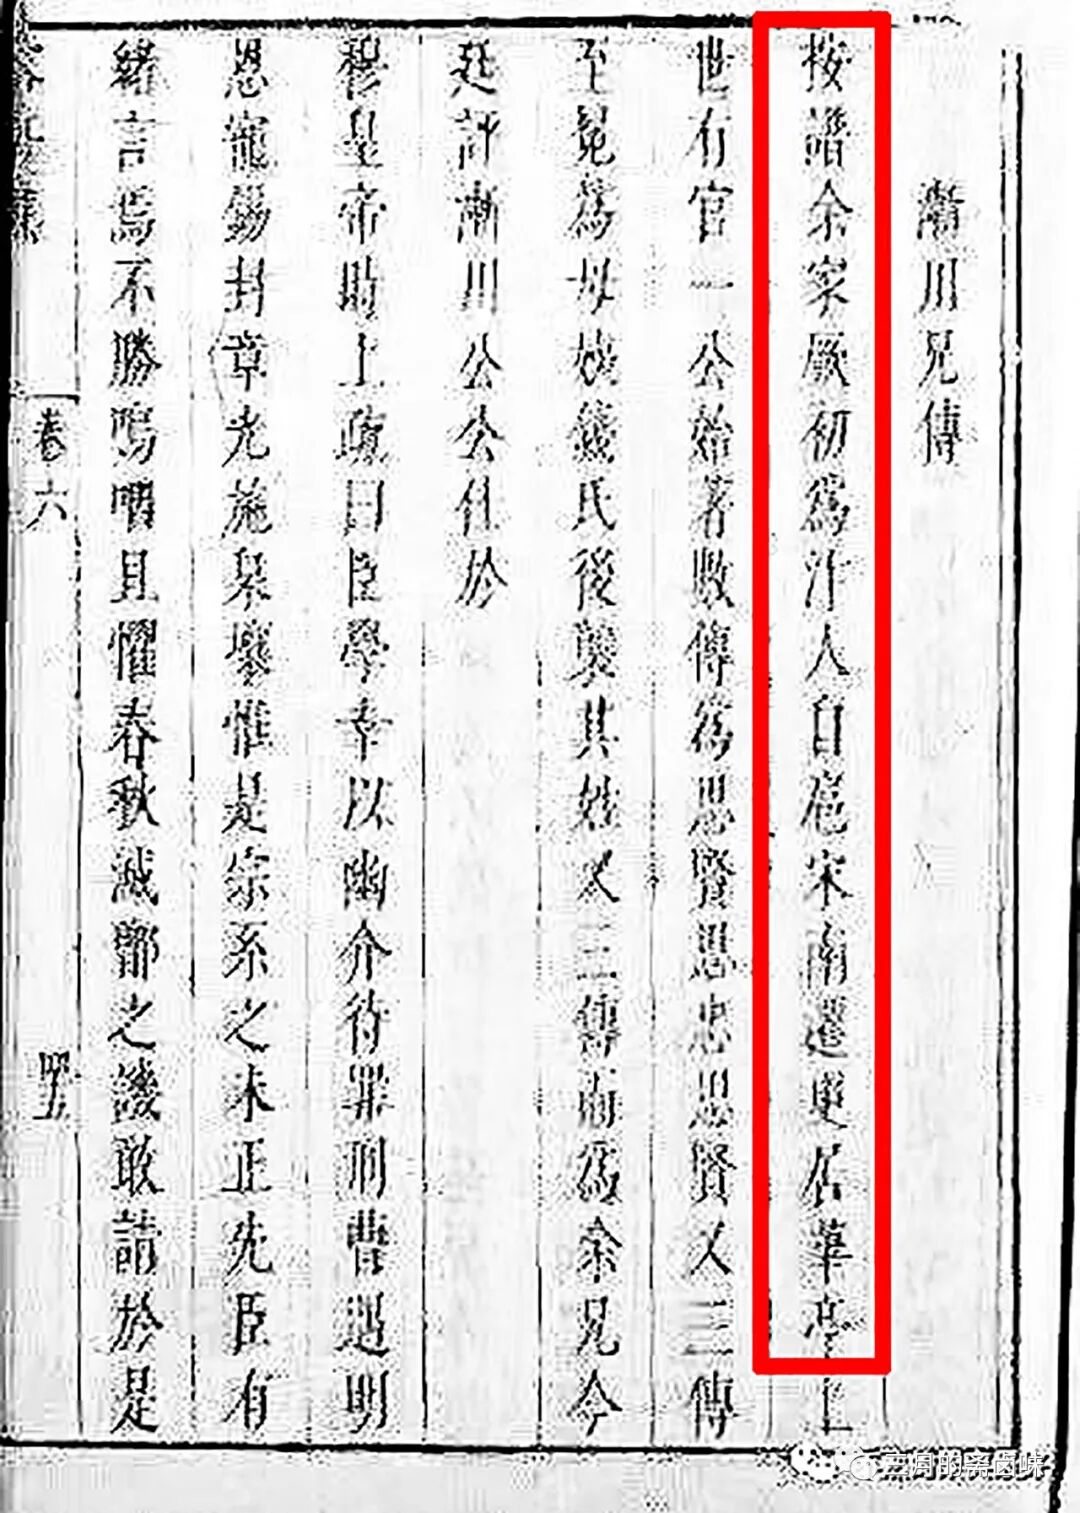 漸川兄傳
按譜余家厥初爲汴人自扈宋南遷更居華亭上
世有官一公始著數傳爲思賢思忠思賢又三傳
至冕爲母姚 氏後襲其姓又三傳而爲余兄今
廷評漸川公公仕於
穆皇帝時上疏曰臣學幸以幽介待罪刑曹遇明
恩寵錫封章尤施舉 惟是宗系之未正先臣有
緒言焉不勝嗚咽且懼春秋滅鄫之譏敢請於是
卷六